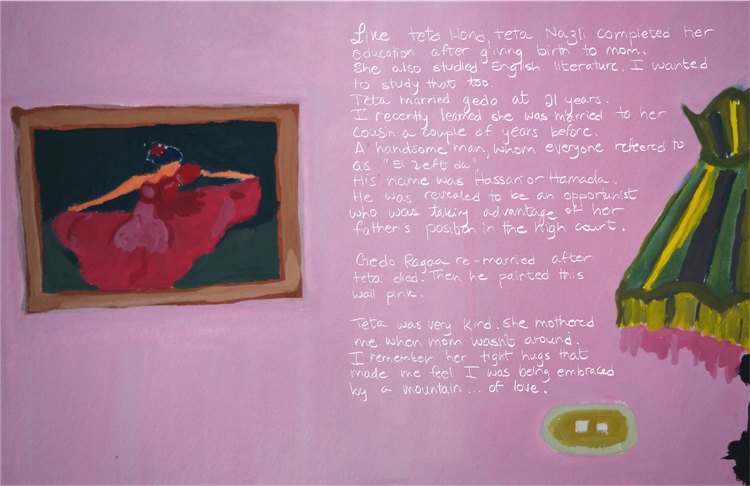 Like teto Hond, teta Nazli completed her
education after giving birth to mom.
She also studied English literature. I wanted
to study that too.
Teta married gedo at 21 years.
I recently learned she was married to her
cousin a couple of years before.
A handsome man, whom everyone refeered to
as "El zeft da"
His name was Hassan or Hamada.
He was revealed to be an opportunist
who was taking advantage of her
father's position in the high court.
Gedo Ragaa re-married after
teta died. Then he painted this
wall pink.
Teta was very kind. She mothered
me when mom wasn't around.
I remember her tight hugs that
made me feel I was being embraced
by a mountain... of love.